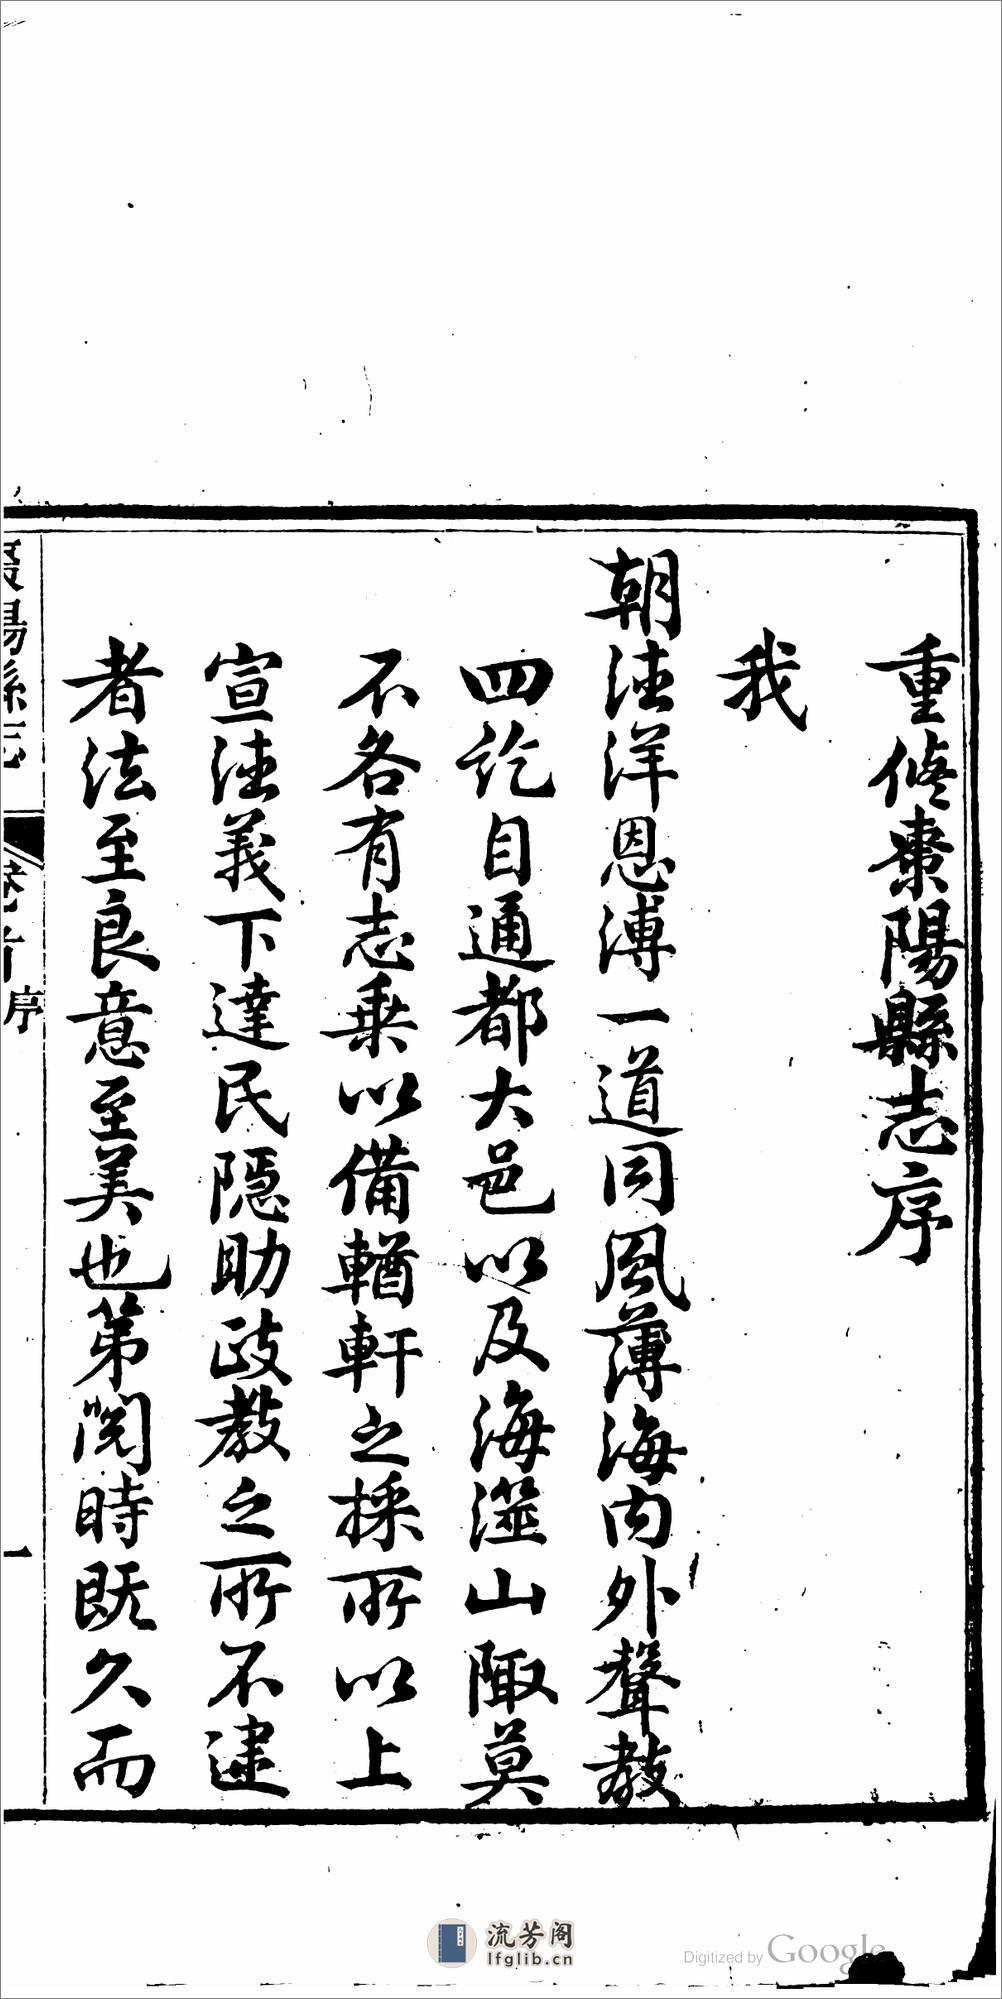 重脩棗陽縣志序
我
朝德洋恩溥一道同風薄海内外聲教
四訖自通都大邑以及海澨山陬莫
不各有志乘以備輶軒之採所以上
宣德義下達民隱助政教之所不逮
者法至良意至美也第閱時既久而
棗陽縣志 卷首 序 一
流芳阁
lfglib.cn
Digitized by Google